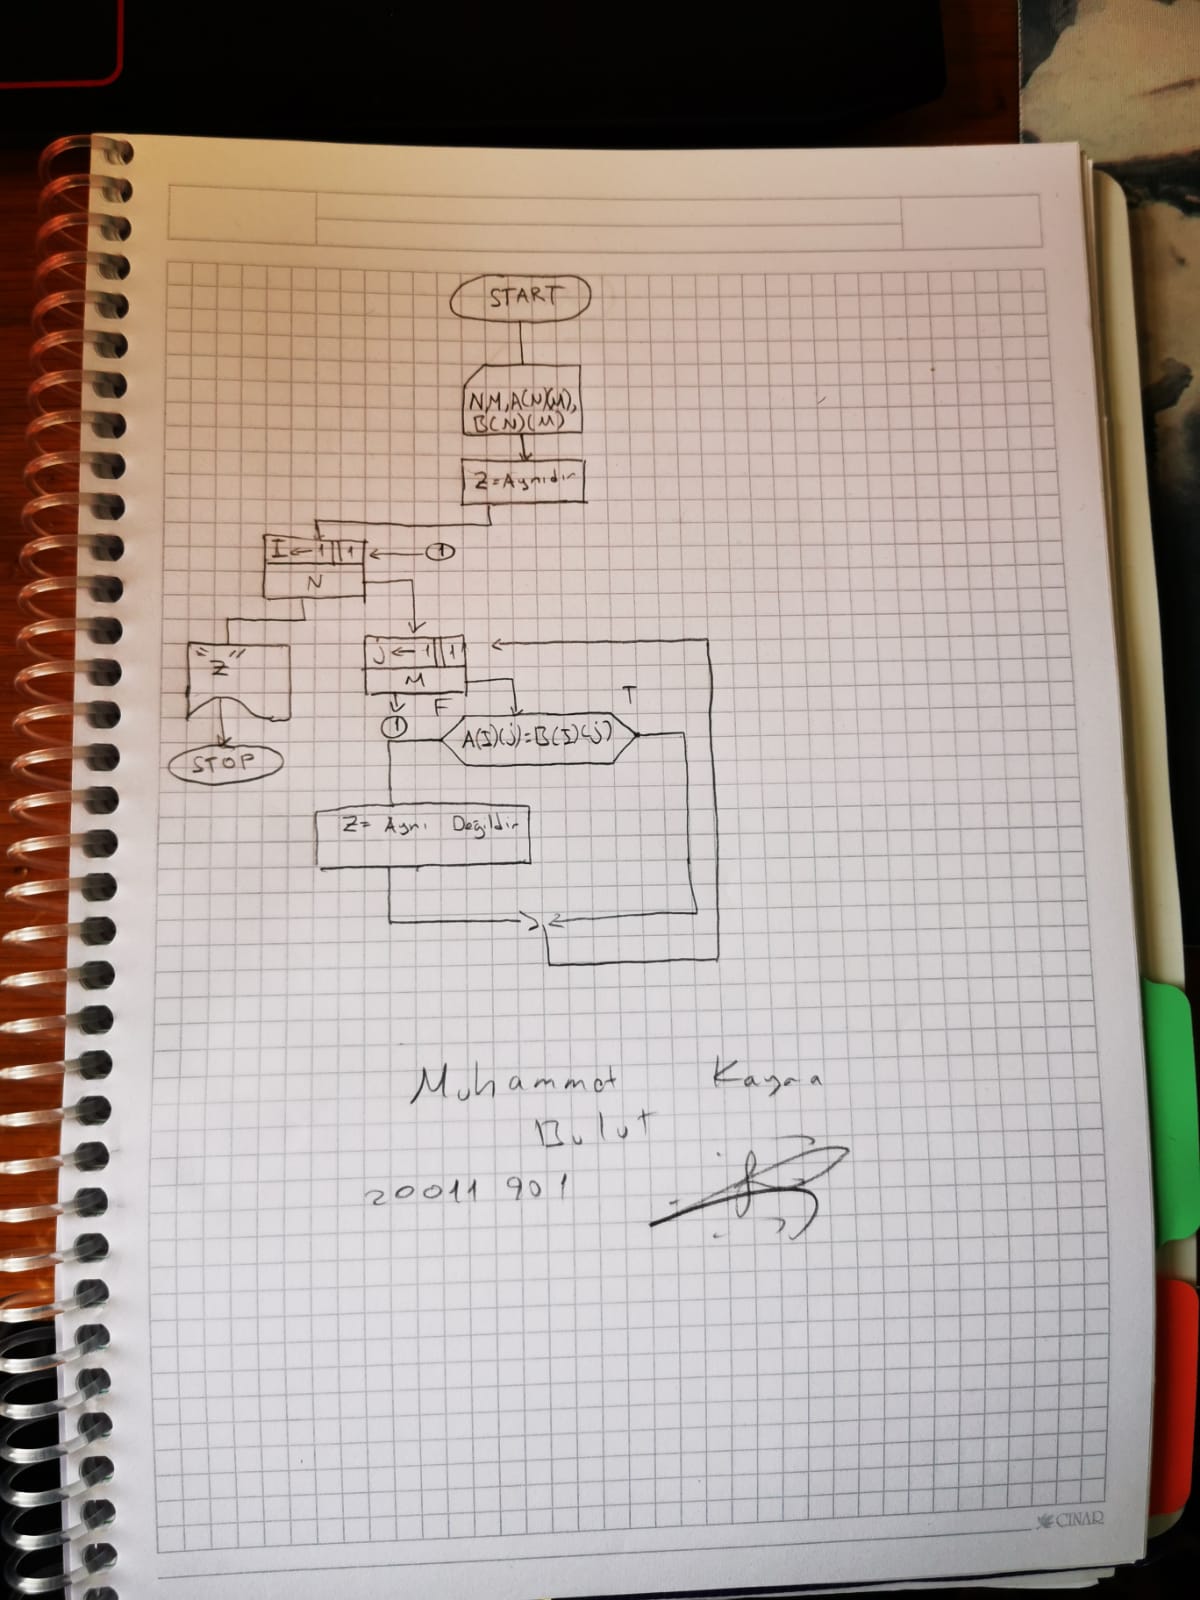 START
N,M,A(N)(M),
B(N)(M)
Z=Aynıdır
I←1 1
1
N
"Z"
J←1 1
M
F
T
1
A(I)(j)=B(I)(j)
STOP
Z= Aynı Değildir
Muhammet Kayra
Bulut
20011901
ÇINAR